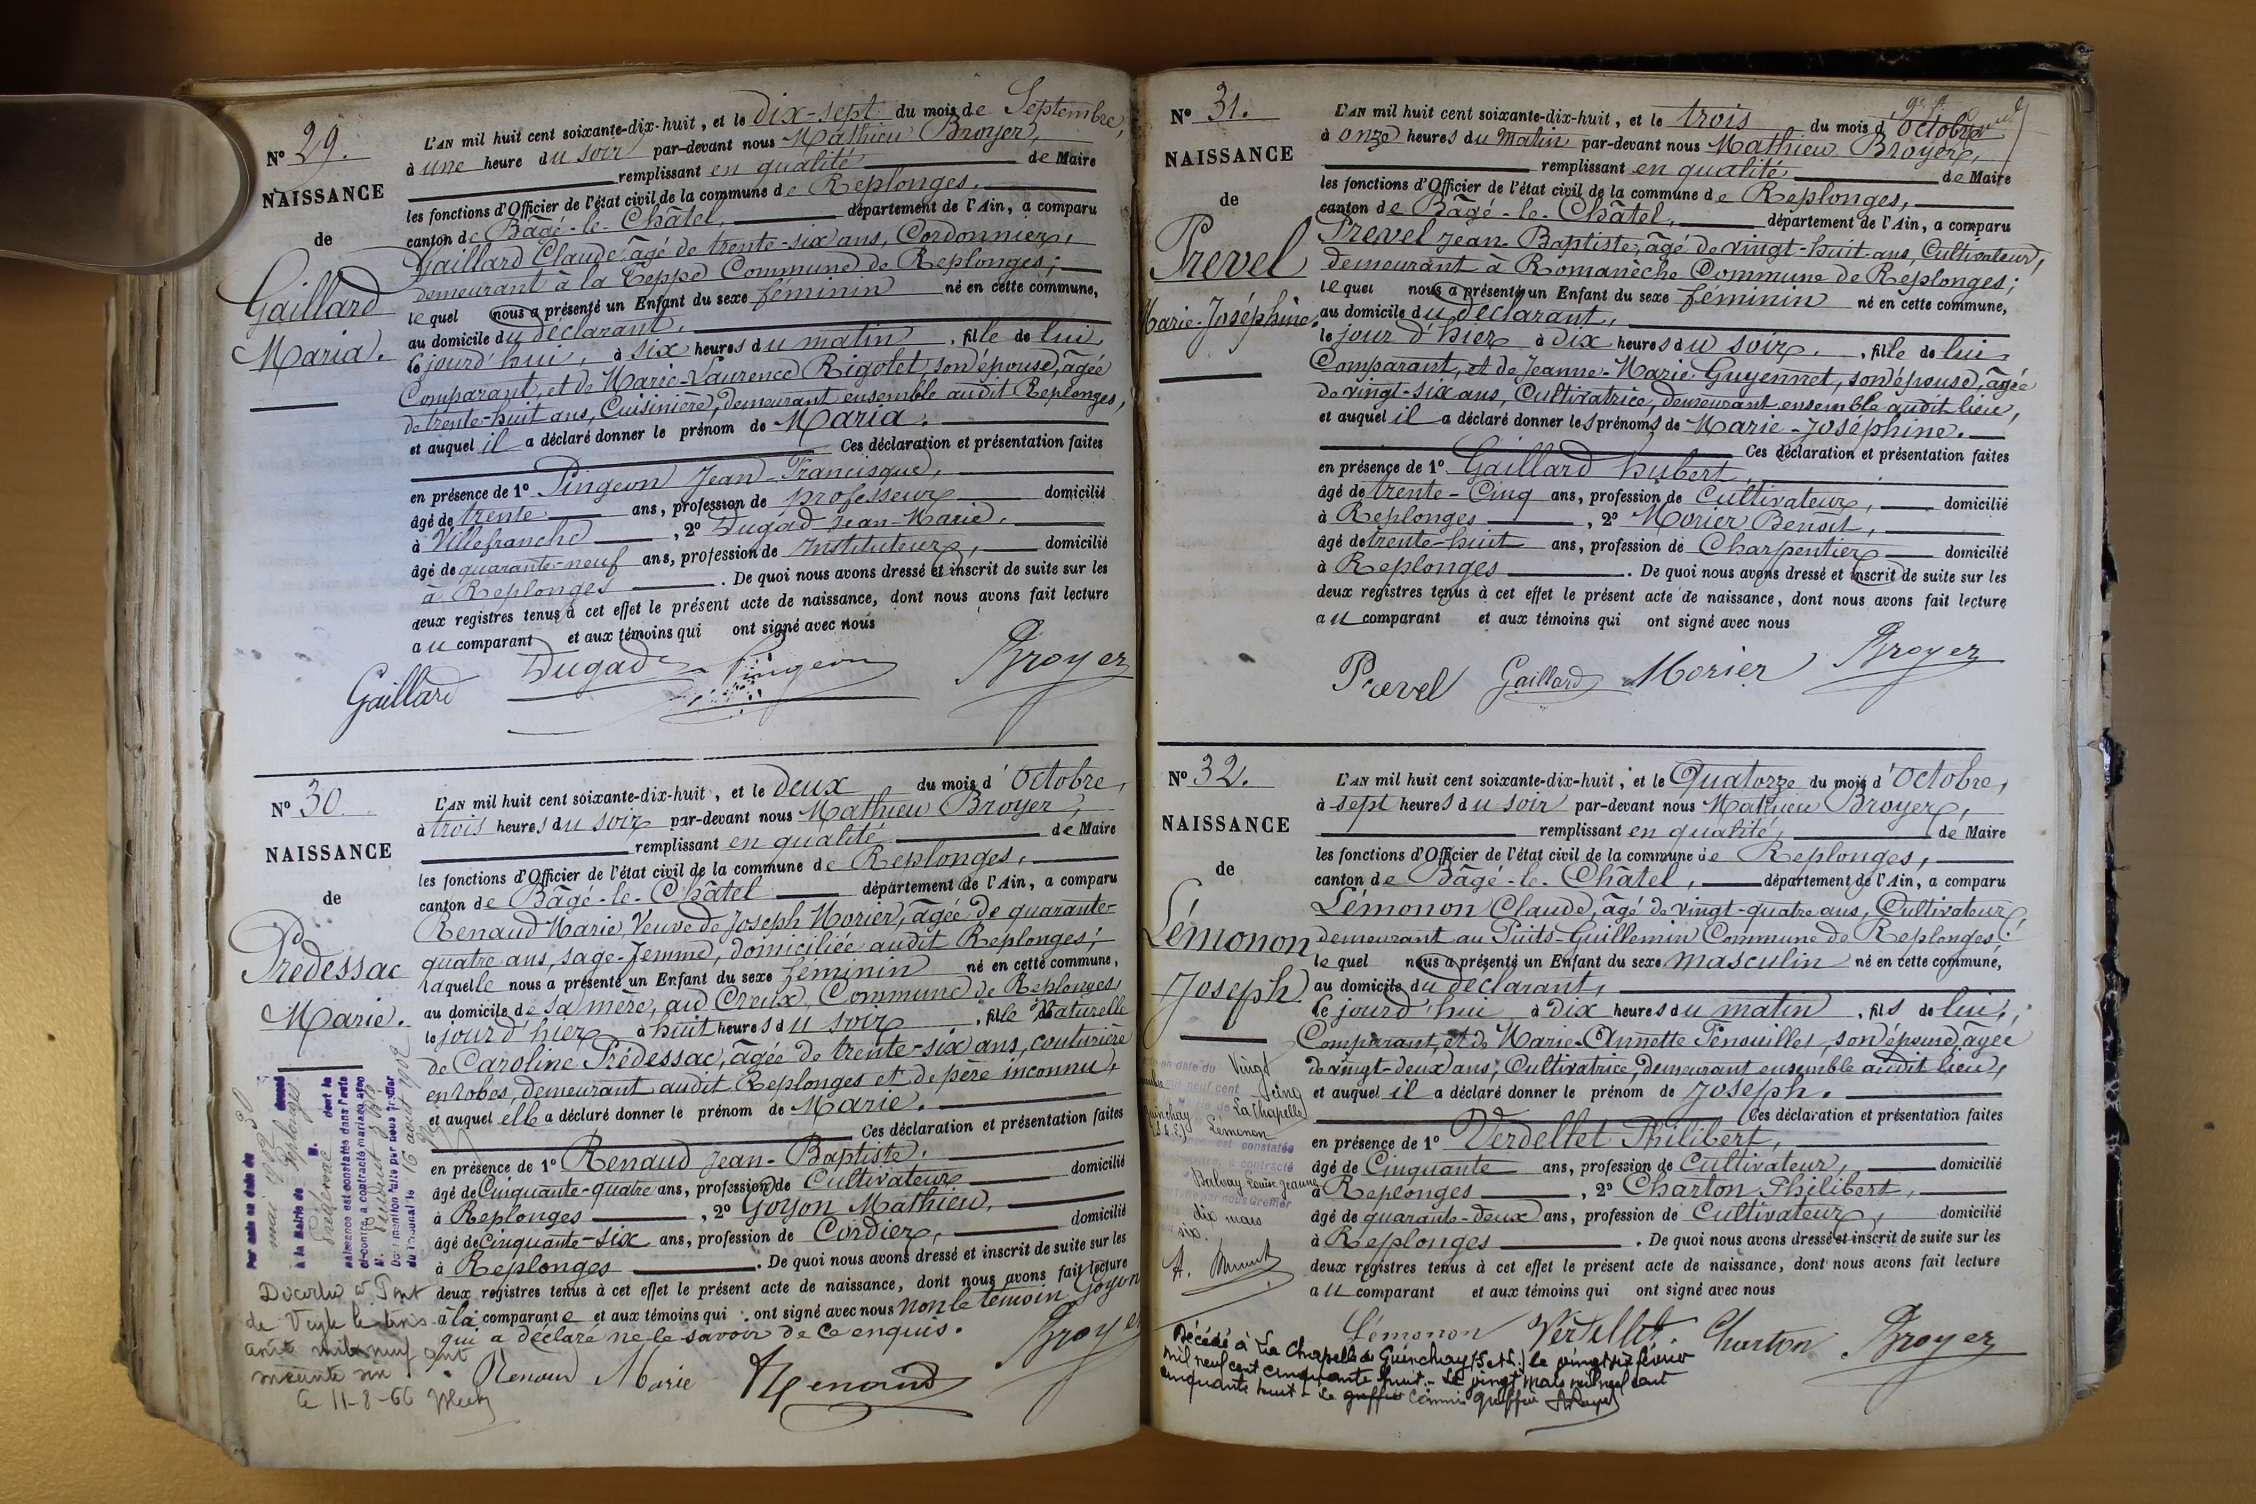 N° 29.
NAISSANCE
de
Gaillard
Maria.
L'AN mil huit cent soixante-dix-huit, et le dix-sept du mois de Septembre,
à une heure du soir par-devant nous Mathieu Broyer,
remplissant en qualité de Maire
les fonctions d'Officier de l'état civil de la commune de Replonges,
canton de Bâgé-le-Châtel département de l'Ain, a comparu
Gaillard Claude, âgé de trente-six ans, Cordonnier,
demeurant à la Teppe Commune de Replonges;
lequel nous a présenté un Enfant du sexe féminin né en cette commune,
au domicile du déclarant,
le jourd'hui, à six heures du matin, fille de lui
Comparant, et de Marie-Laurence Rigolet, son épouse, âgée
de trente-huit ans, Cuisinière, demeurant ensemble audit Replonges,
et auquel il a déclaré donner le prénom de Maria.
Ces déclaration et présentation faites
en présence de 1° Pingeon Jean-Francisque,
âgé de trente ans, profession de professeur domicilié
à Villefranche, 2° Dugad Jean-Marie,
âgé de quarante-neuf ans, profession de Instituteur, domicilié
à Replonges. De quoi nous avons dressé et inscrit de suite sur les
deux registres tenus à cet effet le présent acte de naissance, dont nous avons fait lecture
au comparant et aux témoins qui ont signé avec nous
Gaillard Dugad Pingeon Broyer
N° 30.
NAISSANCE
de
Prédessac
Marie.
L'AN mil huit cent soixante-dix-huit, et le deux du mois d'Octobre,
à trois heures du soir par-devant nous Mathieu Broyer,
remplissant en qualité de Maire
les fonctions d'Officier de l'état civil de la commune de Replonges,
canton de Bâgé-le-Châtel département de l'Ain, a comparu
Renaud Marie, Veuve de Joseph Morier, âgée de quarante-
quatre ans, sage-femme, domiciliée audit Replonges;
laquelle nous a présenté un Enfant du sexe féminin né en cette commune,
au domicile de sa mère, au Creux, Commune de Replonges,
le jour d'hier à huit heures du soir, fille Naturelle
de Caroline Prédessac, âgée de trente-six ans, couturière
en robes, demeurant audit Replonges et de père inconnu,
et auquel elle a déclaré donner le prénom de Marie.
Ces déclaration et présentation faites
en présence de 1° Renaud Jean-Baptiste,
âgé de Cinquante-quatre ans, profession de Cultivateur domicilié
à Replonges, 2° Goyon Mathieu,
âgé de Cinquante-six ans, profession de Cordier, domicilié
à Replonges. De quoi nous avons dressé et inscrit de suite sur les
deux registres tenus à cet effet le présent acte de naissance, dont nous avons fait lecture
à la comparante et aux témoins qui ont signé avec nous non le témoin Goyon
qui a déclaré ne le savoir de ce enquis.
Renaud Marie Renaud Broyer
Par acte en date du 30
mai 1902 dressé
à la Mairie de Replonges
Prédessac M. dont la
naissance est constatée dans l'acte
ci-contre, a contracté mariage avec
M.
Dont mention faite par nous Greffier
du Tribunal le 16 août 1902
Décédée à Pont
de Veyle le trois
août mil neuf cent
soixante six
le 11-8-66
N° 31.
NAISSANCE
de
Prevel
Marie-Joséphine.
L'AN mil huit cent soixante-dix-huit, et le trois du mois d'Octobre
à onze heures du Matin par-devant nous Mathieu Broyer,
remplissant en qualité, de Maire
les fonctions d'Officier de l'état civil de la commune de Replonges,
canton de Bâgé-le-Châtel, département de l'Ain, a comparu
Prevel Jean-Baptiste, âgé de vingt-huit ans, Cultivateur,
demeurant à Romanèche Commune de Replonges;
lequel nous a présenté un Enfant du sexe féminin né en cette commune,
au domicile du déclarant,
le jour d'hier à dix heures du soir, fille de lui
Comparant, et de Jeanne-Marie Guyennet, son épouse, âgée
de vingt-six ans, Cultivatrice, demeurant ensemble audit lieu,
et auquel il a déclaré donner les prénoms de Marie-Joséphine.
Ces déclaration et présentation faites
en présence de 1° Gaillard hubert,
âgé de trente-Cinq ans, profession de Cultivateur, domicilié
à Replonges, 2° Morier Benoit,
âgé de trente-huit ans, profession de Charpentier domicilié
à Replonges. De quoi nous avons dressé et inscrit de suite sur les
deux registres tenus à cet effet le présent acte de naissance, dont nous avons fait lecture
au comparant et aux témoins qui ont signé avec nous
Prevel Gaillard Morier Broyer
N° 32.
NAISSANCE
de
Lémonon
Joseph.
L'AN mil huit cent soixante-dix-huit, et le Quatorze du mois d'Octobre,
à sept heures du soir par-devant nous Mathieu Broyer,
remplissant en qualité, de Maire
les fonctions d'Officier de l'état civil de la commune de Replonges,
canton de Bâgé-le-Châtel, département de l'Ain, a comparu
Lémonon Claude, âgé de vingt-quatre ans, Cultivateur,
demeurant au Puits-Guillemin Commune de Replonges;
lequel nous a présenté un Enfant du sexe masculin né en cette commune,
au domicile du déclarant,
le jourd'hui à dix heures du matin, fils de lui,
Comparant, et de Marie-Annette Penouillet, son épouse, âgée
de vingt-deux ans, Cultivatrice, demeurant ensemble audit lieu,
et auquel il a déclaré donner le prénom de Joseph.
Ces déclaration et présentation faites
en présence de 1° Verdellet Philibert,
âgé de Cinquante ans, profession de Cultivateur, domicilié
à Replonges, 2° Charton Philibert,
âgé de quarante-deux ans, profession de Cultivateur, domicilié
à Replonges. De quoi nous avons dressé et inscrit de suite sur les
deux registres tenus à cet effet le présent acte de naissance, dont nous avons fait lecture
au comparant et aux témoins qui ont signé avec nous
Lémonon Verdellet. Charton Broyer
en date du Vingt
mil neuf cent cinq
La Chapelle
Guinchay
(S.&L.) Lémonon
est constatée
a contracté
Balvay Louise Jeanne
par nous Greffier
dix mars
six.
Décédé à La Chapelle de Guinchay (S et L.) le vingt six février
mil neuf cent cinquante huit. - Le vingt Mars mil neuf cent
cinquante huit - Le greffier Commis Greffier